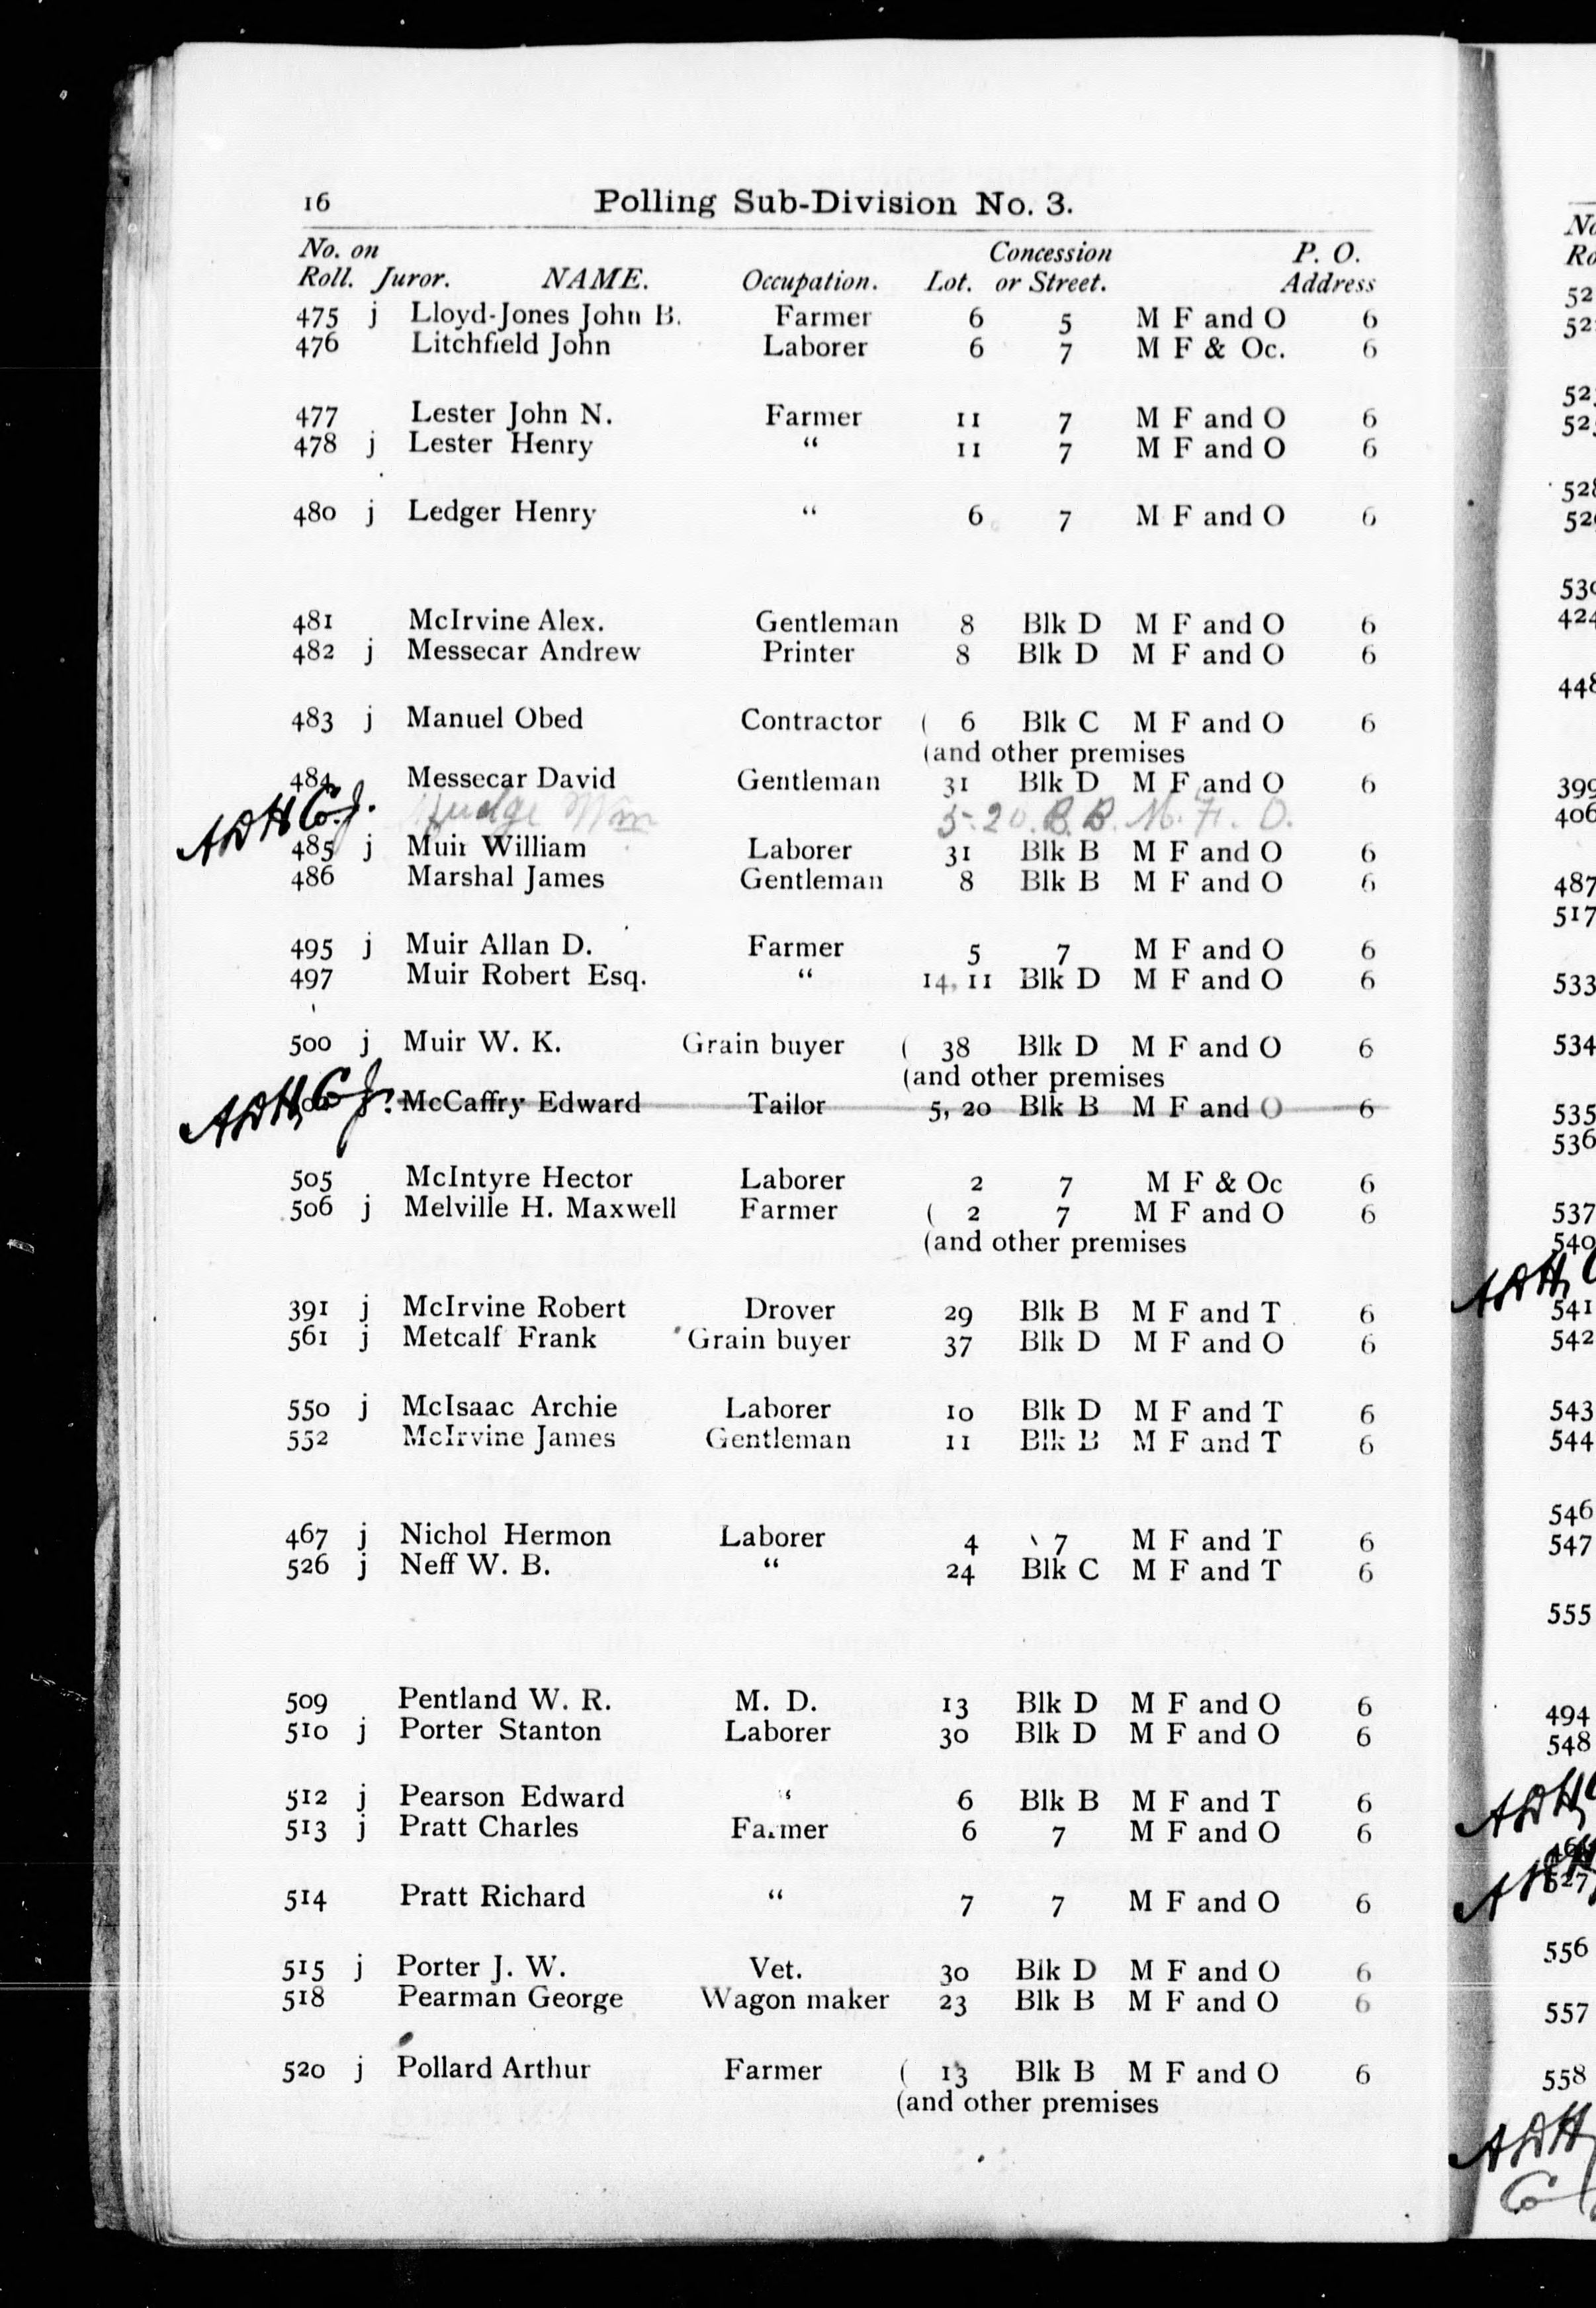 16 Polling Sub-Division No. 3.
No. on Concession P. O.
Roll. Juror. NAME. Occupation. Lot. or Street. Address
475 j Lloyd-Jones John B. Farmer 6 5 M F and O 6
476 Litchfield John Laborer 6 7 M F & Oc. 6
477 Lester John N. Farmer 11 7 M F and O 6
478 j Lester Henry “ 11 7 M F and O 6
480 j Ledger Henry “ 6 7 M F and O 6
481 McIrvine Alex. Gentleman 8 Blk D M F and O 6
482 j Messecar Andrew Printer 8 Blk D M F and O 6
483 j Manuel Obed Contractor ( 6 Blk C M F and O 6
(and other premises
484 Messecar David Gentleman 31 Blk D M F and O 6
ADH Co. J. Judge Wm 5-20. B. B. M. F. O.
485 j Muir William Laborer 31 Blk B M F and O 6
486 Marshal James Gentleman 8 Blk B M F and O 6
495 j Muir Allan D. Farmer 5 7 M F and O 6
497 Muir Robert Esq. “ 14, 11 Blk D M F and O 6
500 j Muir W. K. Grain buyer ( 38 Blk D M F and O 6
(and other premises
ADH Co J. McCaffry Edward Tailor 5, 20 Blk B M F and O 6
505 McIntyre Hector Laborer 2 7 M F & Oc 6
506 j Melville H. Maxwell Farmer ( 2 7 M F and O 6
(and other premises
391 j McIrvine Robert Drover 29 Blk B M F and T 6
561 j Metcalf Frank Grain buyer 37 Blk D M F and O 6
550 j McIsaac Archie Laborer 10 Blk D M F and T 6
552 McIrvine James Gentleman 11 Blk B M F and T 6
467 j Nichol Hermon Laborer 4 7 M F and T 6
526 j Neff W. B. “ 24 Blk C M F and T 6
509 Pentland W. R. M. D. 13 Blk D M F and O 6
510 j Porter Stanton Laborer 30 Blk D M F and O 6
512 j Pearson Edward “ 6 Blk B M F and T 6
513 j Pratt Charles Farmer 6 7 M F and O 6
514 Pratt Richard “ 7 7 M F and O 6
515 j Porter J. W. Vet. 30 Blk D M F and O 6
518 Pearman George Wagon maker 23 Blk B M F and O 6
520 j Pollard Arthur Farmer ( 13 Blk B M F and O 6
(and other premises
528
530
424
448
399
406
487
517
533
534
535
536
537
540
ADH
541
542
543
544
546
547
555
494
548
ADH
527
556
557
558
ADH
Co